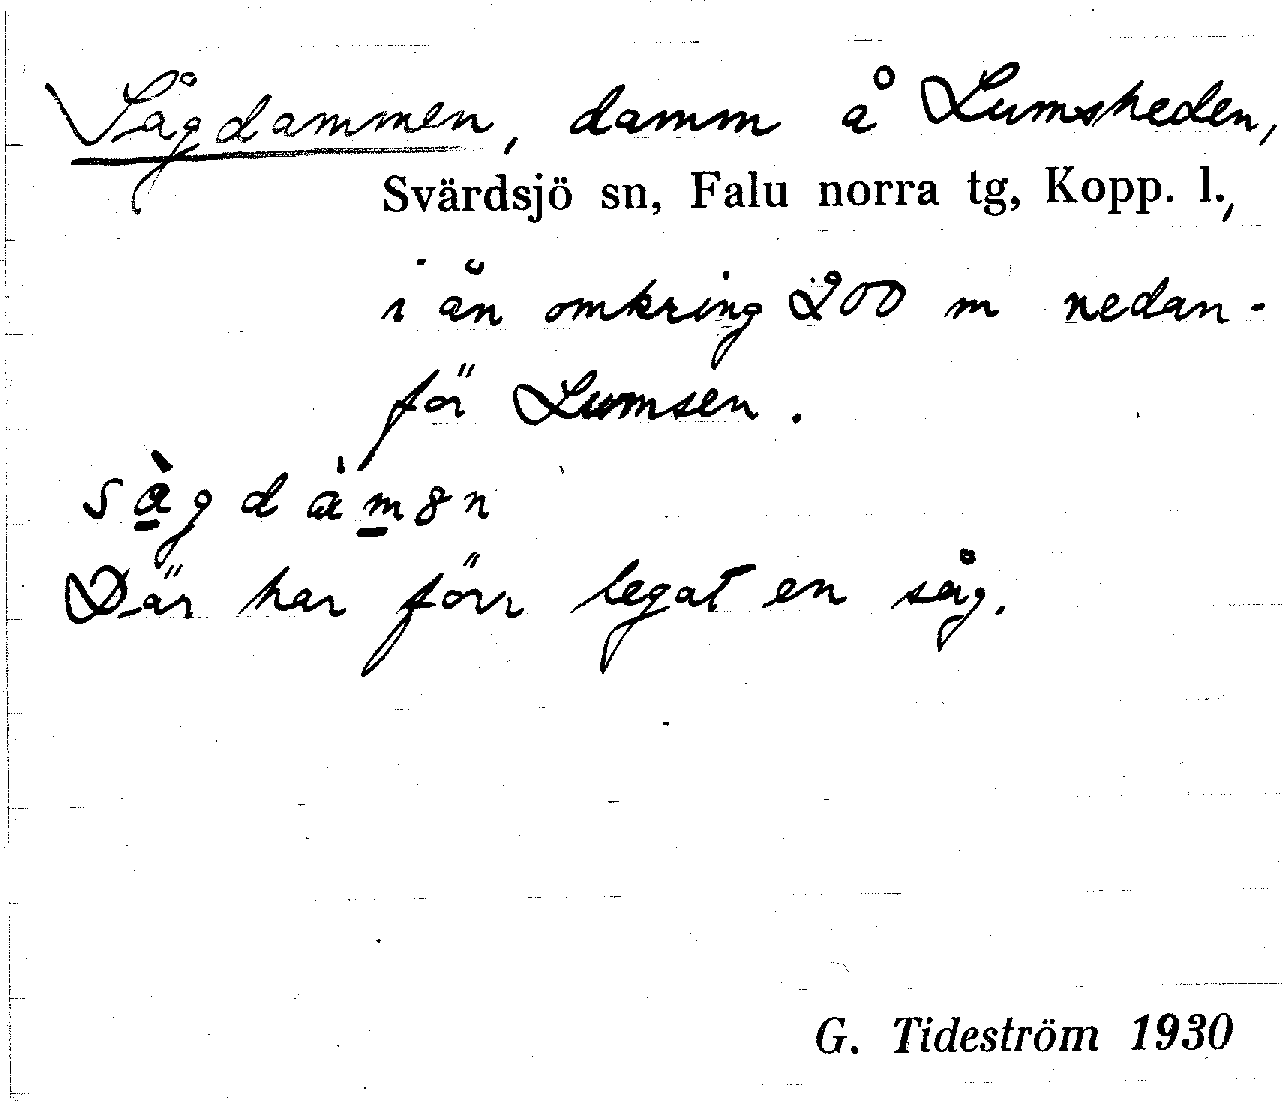 Sågdammen, damm å Lumsheden,
Svärdsjö sn, Falu norra tg, Kopp. l.,
i ån omkring 200 m nedan-
för Lumsen.
sàgdàmən
Där har förr legat en såg.
G. Tideström 1930